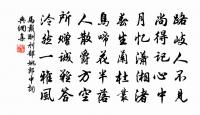 路岐人不見
尚得記心中
月憶瀟湘渚
春生蘭杜叢
鳥啼花半落
人散爵方空
所贈誠難答
泠然一雅風
馬戴酬刑部姚郎中詞